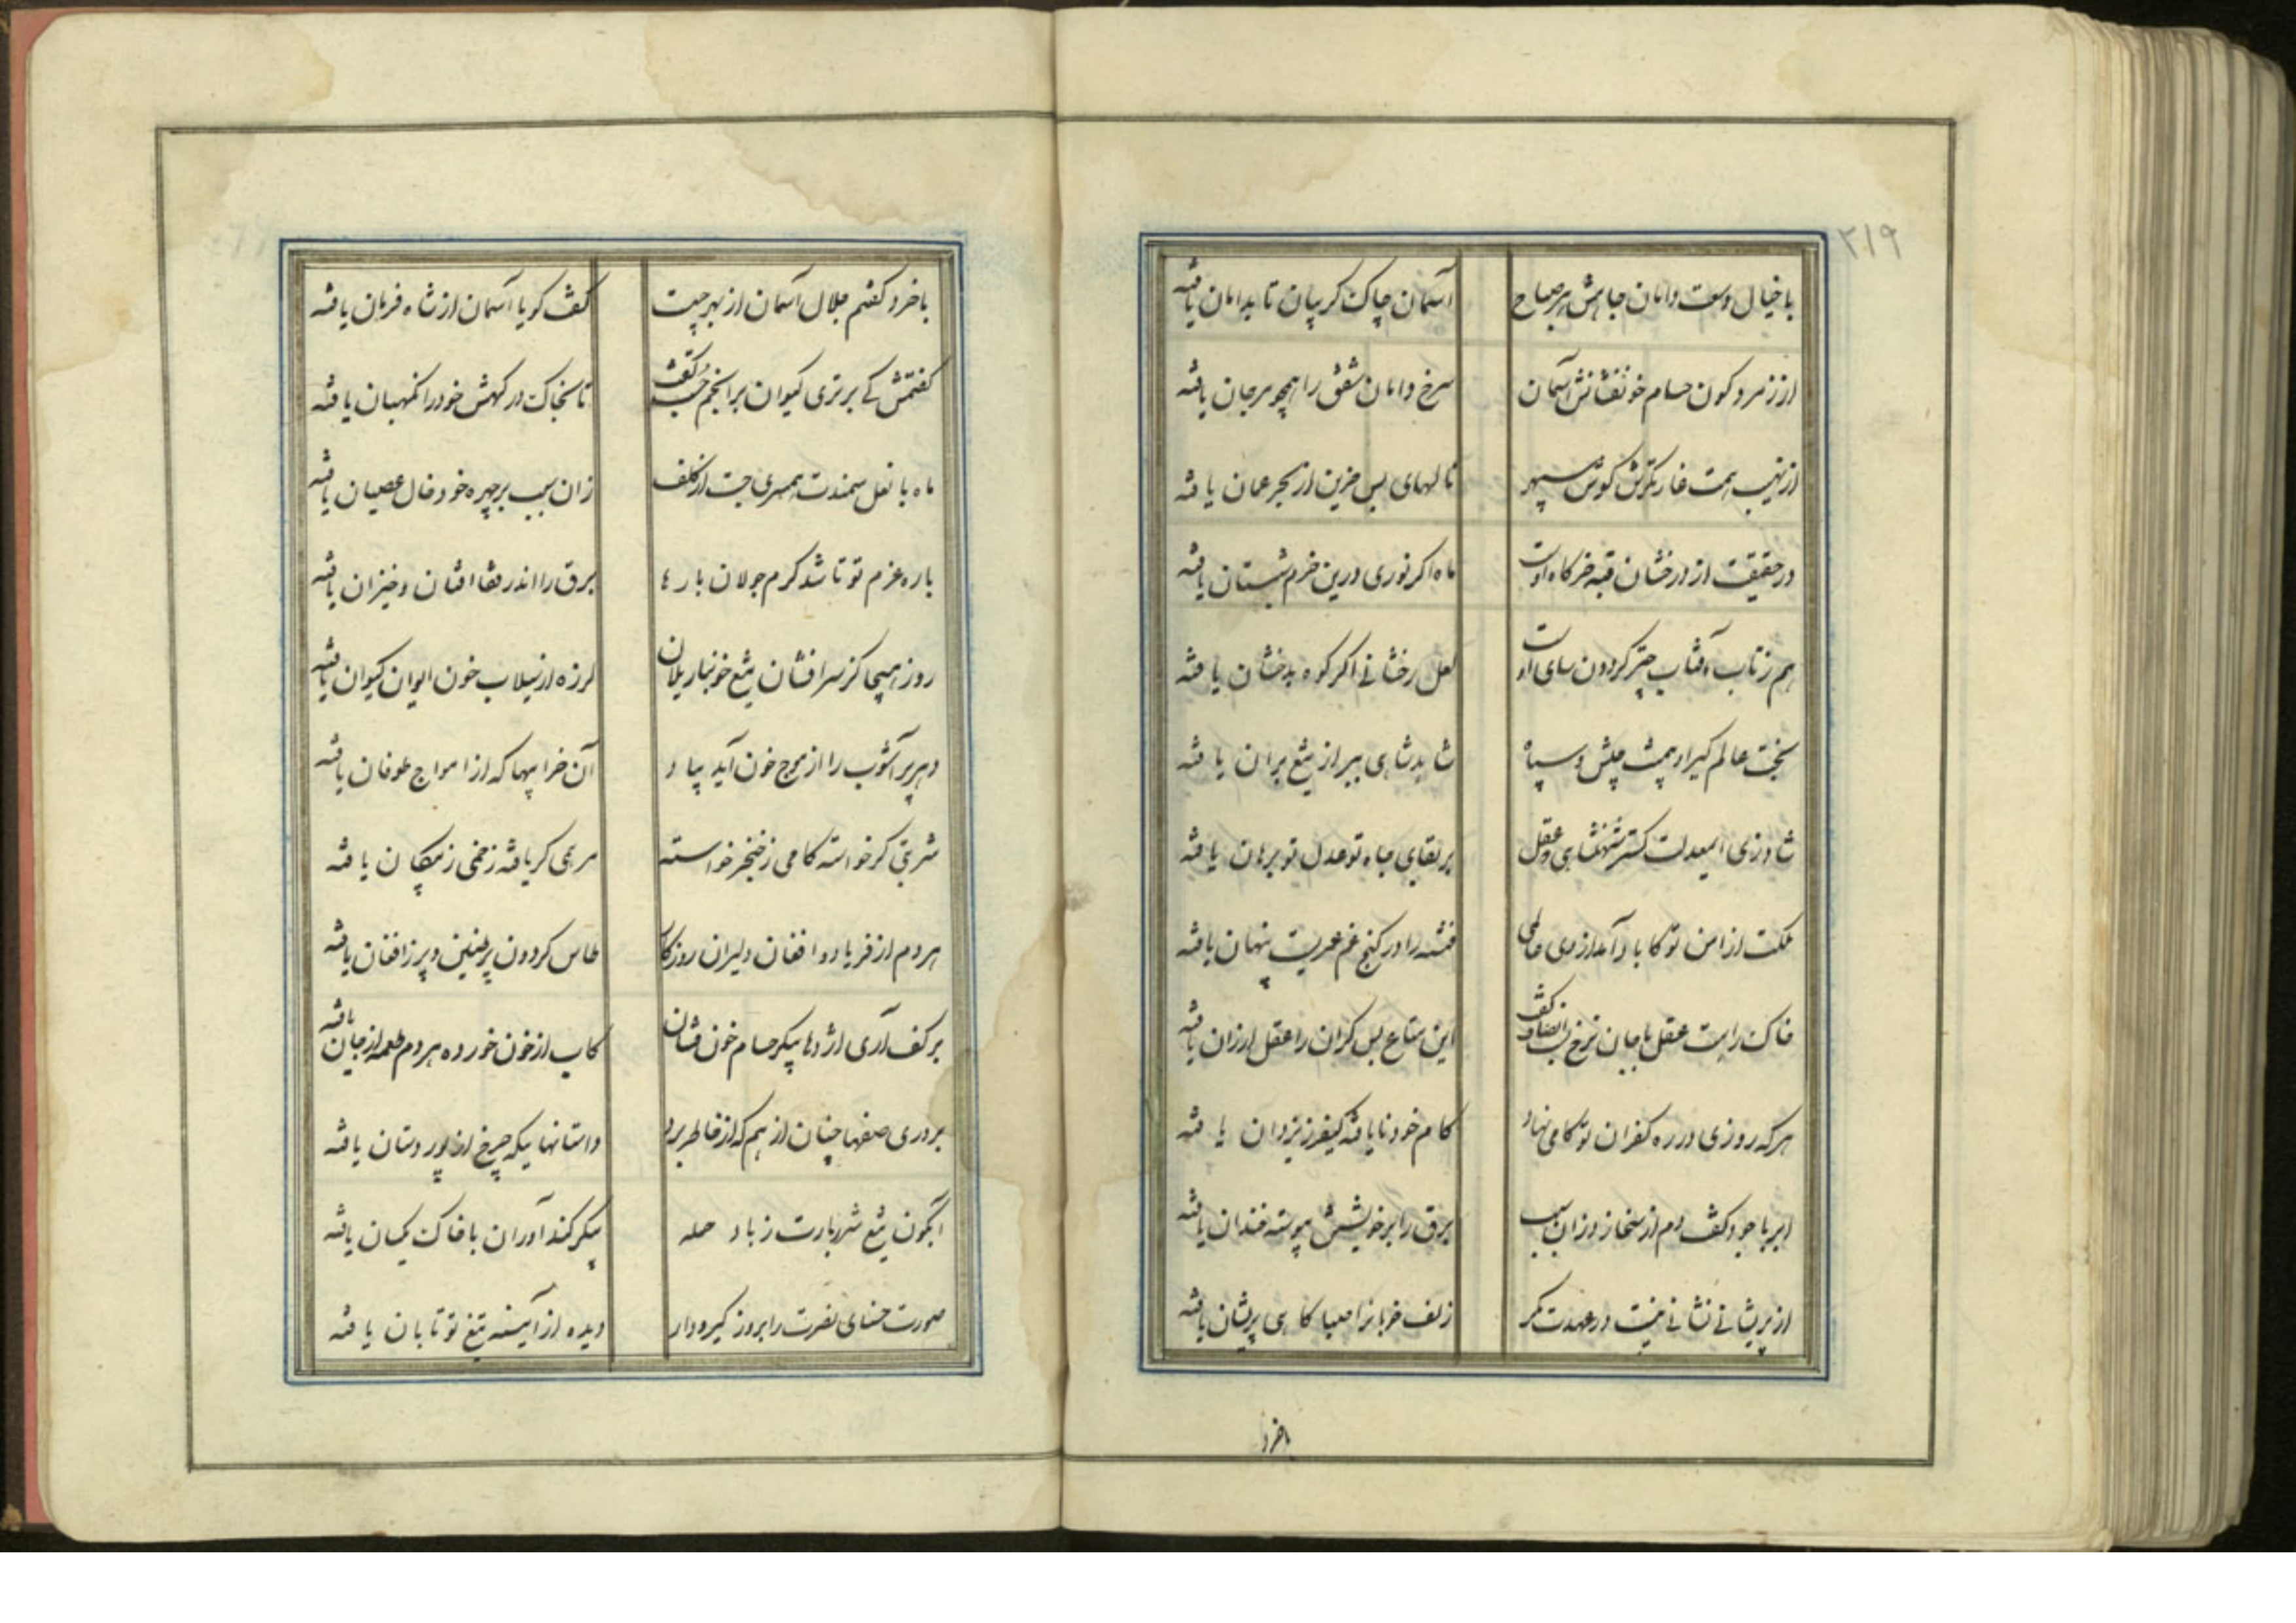 ۲۱۹
با خیال وسعت دامان جاهش هر صباح آسمان چاک کریبان تا بدامان یافته
از زمرد کون حسام خونفشانش آسمان سرخ دامان شفق را همچو مرجان یافته
از نهیب همت کوش سپهر نالهای بس حزین از بحر عمان یافته
در حقیقت از درخشان قبه خرکاه اوست ماه اکر نوری درین خرم شبستان یافته
هم ز تاب آفتاب چتر کردون سای اوست لعل رخشانی اکر کوه بدخشان یافته
بخت عالم کیر او پشت جیش و سپاه شاید شاهی ببر از تیغ بران یافته
شاد زی ایمعدلت کستر شهنشاهی که عقل بر بقای جاه تو عدل تو برهان یافته
مملکت از امن تو کاباد آمد از وی عالمی فتنه را در کنج غم عمریست پنهان یافته
خاک راهت عقل با جان نرخ بست انصاف کفت این متاع بس کران را عقل ارزان یافته
هر که روزی در ره کفران تو کامی نهاد کام خود نا یافته کیفر ز یزدان یافته
ابر با جود کفت دم از سخا زد زان سبب برق را بر خویشتن پیوسته خندان یافته
از پریشانی نشانی نیست در عهدت مکر زلف خوبانرا صبا کاهی پریشان یافته
باخرد
با خرد کفتم جلال آسمان از بهر چیست کفت کویا آسمان از شاه فرمان یافته
کفتمش کی برتری کیوان بر انجم جست کفت تا بخاک درکهش خود را نکهبان یافته
ماه با نعل سمندت همسری جست از کلف زان سبب بر چهره خود خال عصیان یافته
باره عزم تو تا شد کرم جولان بارها برق را اندر قفا افتان و خیزان یافته
روز هیجا کز سر افشان تیغ خونبار یلان لرزه از سیلاب خون ایوان کیوان یافته
دهر پر آشوب را از موج خون آید بیاد آن خرابیها که از امواج طوفان یافته
شربتی کر خواسته کامی ز خنجر خواسته مرهمی کر یافته زخمی ز پیکان یافته
هر دم از فریاد و افغان دلیران روزکار طاس کردون پر طنین و پر ز افغان یافته
بر کف آری اژدها پیکر حسام خون فشان کاب از خون خورده هر دم طعمه از جان یافته
بر دری صفها چنان از هم که از خاطر برد داستانهائیکه چرخ از پور دستان یافته
آبکون تیغ شهربارت ز باد حمله پیکر کندآوران با خاک یکسان یافته
صورت حسنای نصرت را بروز کیر و دار دیده از آیینه تیغ تو تابان یافته